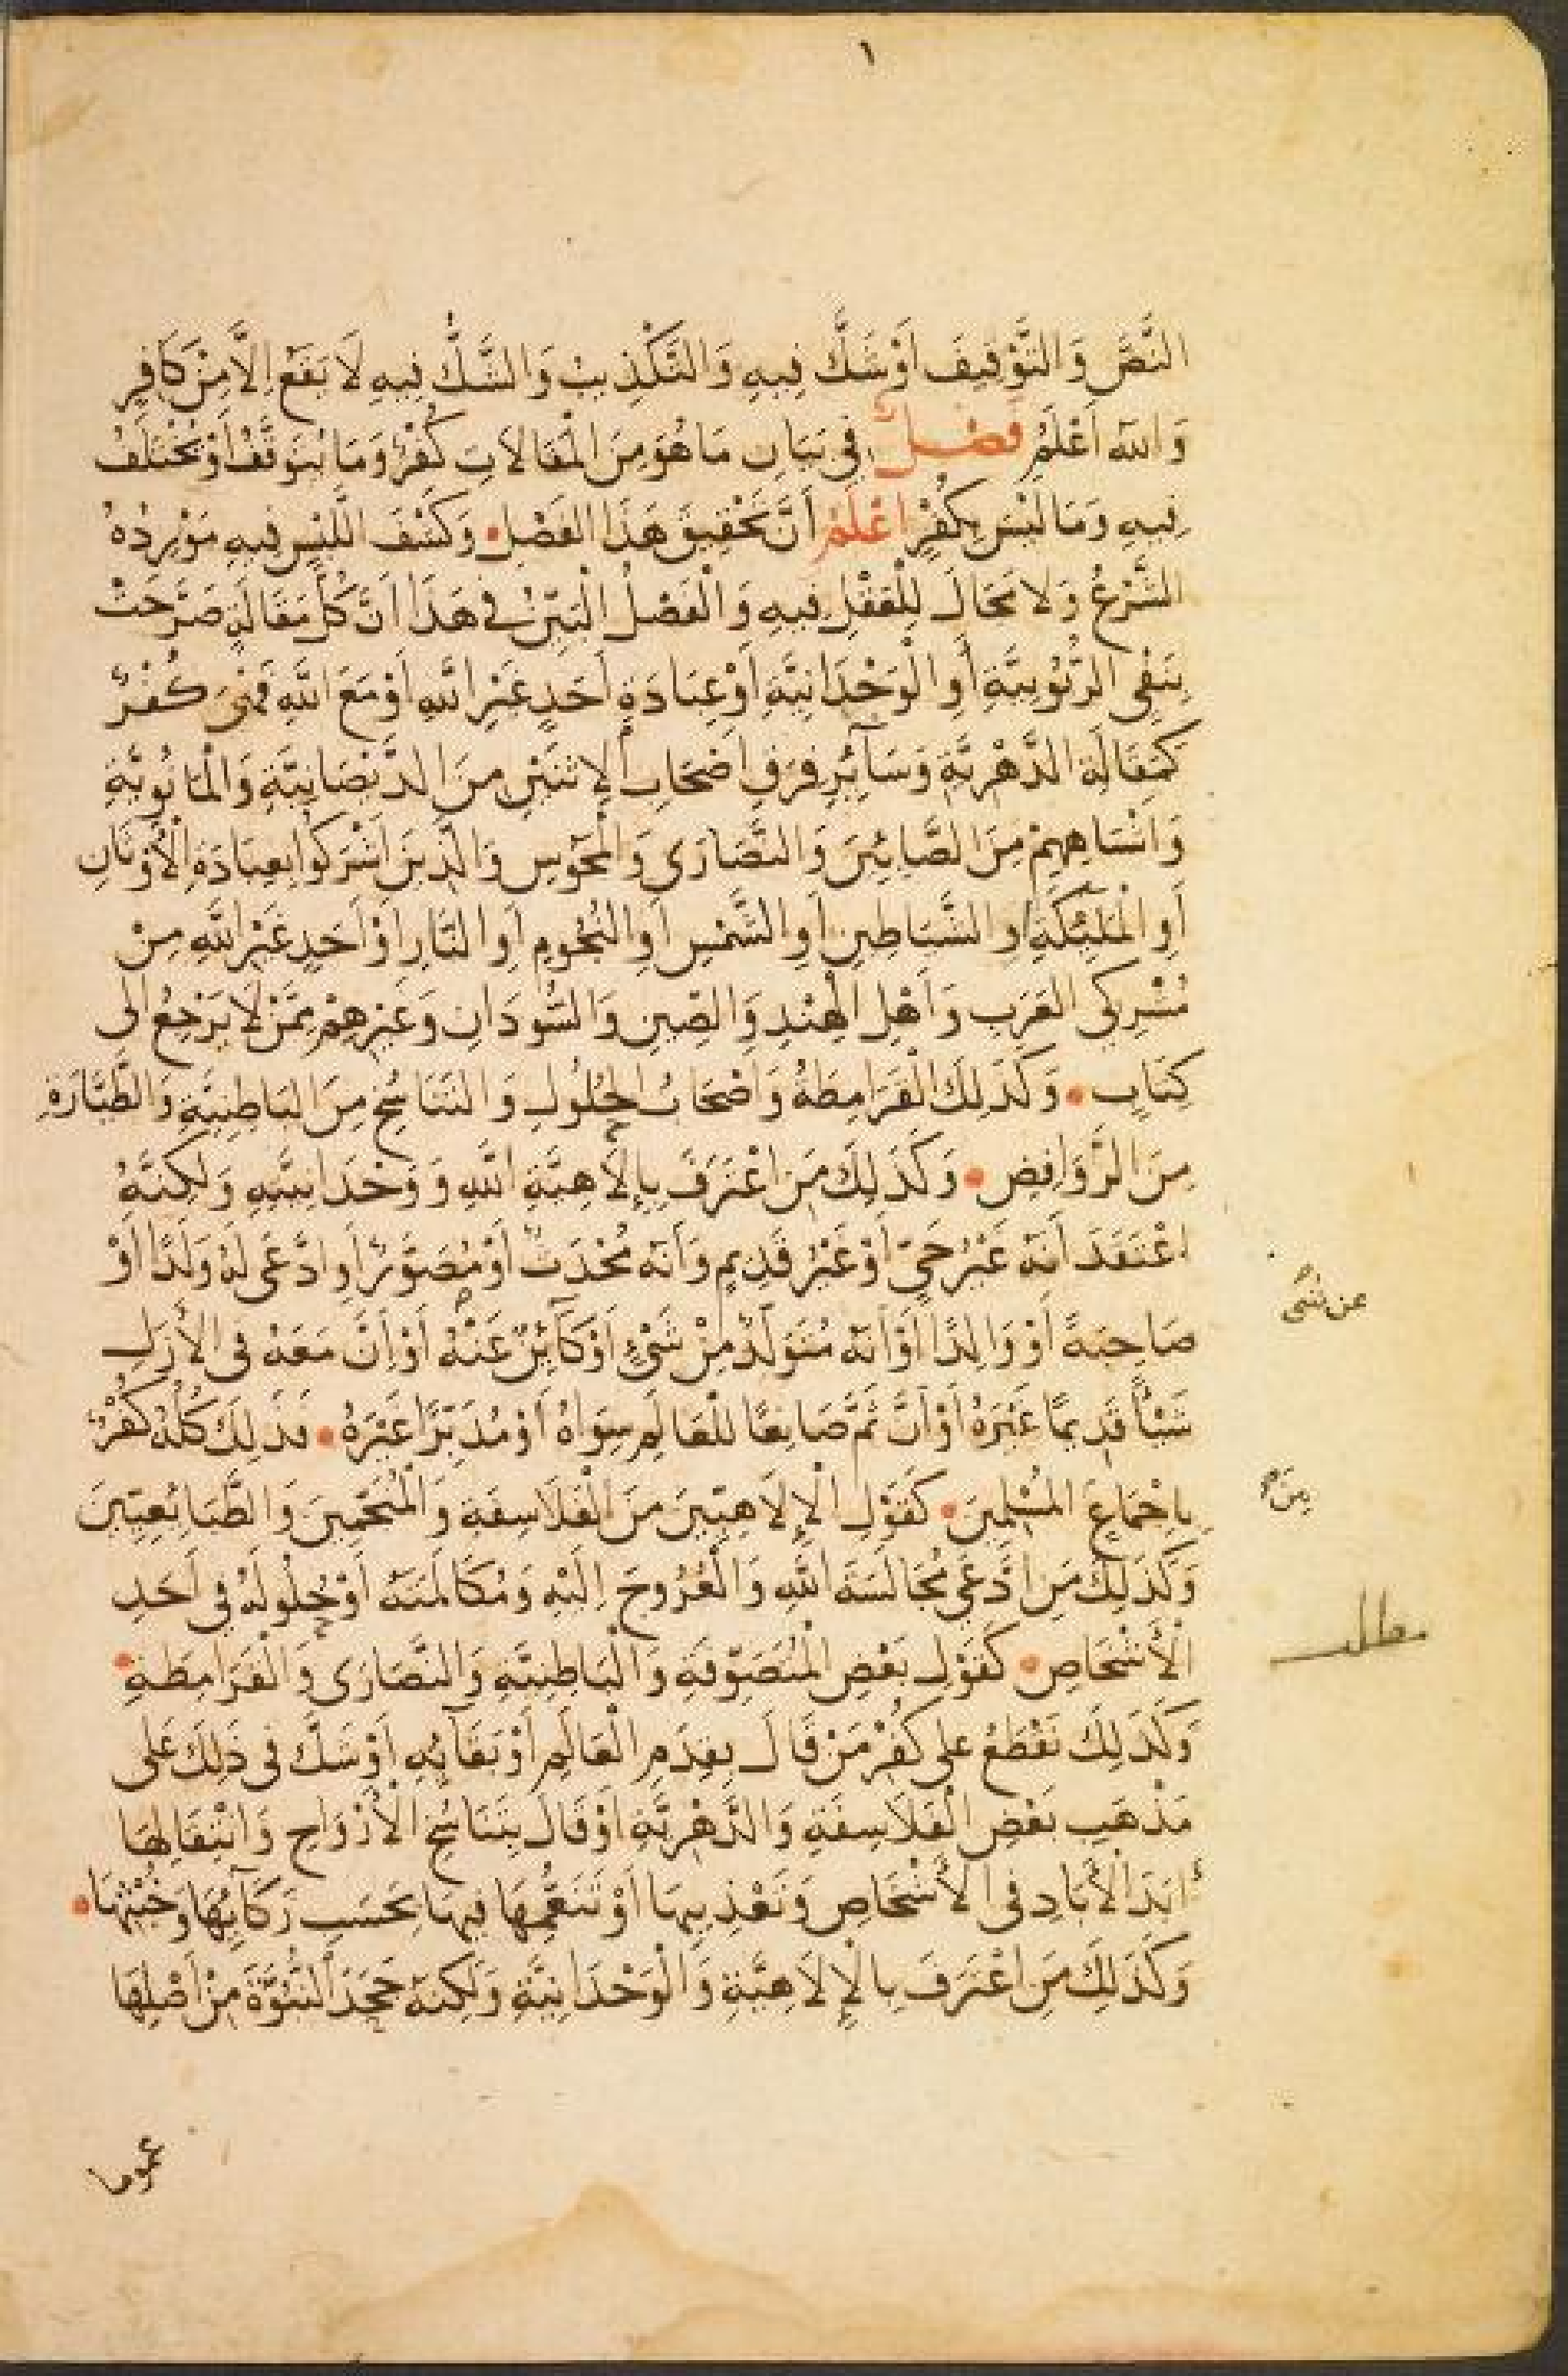 ١
النَّصَّ وَالتَّوْقِيفَ أَوْ شَكَّ فِيهِ وَالتَّكْذِيبُ وَالشَّكُّ فِيهِ لَا يَقَعُ إِلَّا مِنْ كَافِرٍ
وَاللهُ أَعْلَمُ فَصْلٌ فِي بَيَانِ مَا هُوَ مِنَ الْمَقَالَاتِ كُفْرٌ وَمَا يُتَوَقَّفُ أَوْ يُخْتَلَفُ
فِيهِ وَمَا لَيْسَ بِكُفْرٍ اعْلَمْ أَنَّ تَحْقِيقَ هَذَا الْفَصْلِ • وَكَشْفَ اللَّبْسِ فِيهِ مَوْرِدُهُ
الشَّرْعُ وَلَا مَجَالَ لِلْعَقْلِ فِيهِ وَالْفَصْلُ الْبَيِّنُ فِي هَذَا أَنَّ كُلَّ مَقَالَةٍ صَرَّحَتْ
بِنَفْيِ الرُّبُوبِيَّةِ أَوِ الْوَحْدَانِيَّةِ أَوْ عِبَادَةِ أَحَدٍ غَيْرِ اللهِ أَوْ مَعَ اللهِ فَهْىَ كُفْرٌ
كَمَقَالَةِ الدَّهْرِيَّةِ وَسَآئِرِ فِرَقِ أَصْحَابِ الْإِثْنَيْنِ مِنَ الدَّيْصَانِيَّةِ وَالْمَانَوِيَّةِ
وَأَشْبَاهِهِمْ مِنَ الصَّابِئِينَ وَالنَّصَارَى وَالْمَجُوسِ وَالَّذِينَ أَشْرَكُوا بِعِبَادَةِ الْأَوْثَانِ
أَوِ الْمَلَئِكَةِ أَوِ الشَّيَاطِينِ أَوِ الشَّمْسِ أَوِ النُّجُومِ أَوِ النَّارِ أَوْ أَحَدٍ غَيْرِ اللهِ مِنْ
مُشْرِكِي الْعَرَبِ وَأَهْلِ الْهِنْدِ وَالصِّينِ وَالسُّودَانِ وَغَيْرِهِمْ مِمَّنْ لَا يَرْجِعُ إِلَى
كِتَابٍ • وَكَذَلِكَ الْقَرَامِطَةُ وَأَصْحَابُ الْحُلُولِ وَالتَّنَاسُخِ مِنَ الْبَاطِنِيَّةِ وَالطَّيَّارَةِ
مِنَ الرَّوَافِضِ • وَكَذَلِكَ مَنِ اعْتَرَفَ بِإِلَاهِيَّةِ اللهِ وَوَحْدَانِيَّتِهِ وَلَكِنَّهُ
اعْتَقَدَ أَنَّهُ غَيْرُ حَيٍّ أَوْ غَيْرُ قَدِيمٍ وَأَنَّهُ مُحْدَثٌ أَوْ مُصَوَّرٌ أَوِ ادَّعَى لَهُ وَلَدًا أَوْ
صَاحِبَةً أَوْ وَالِدًا أَوْ أَنَّهُ مُتَوَلِّدٌ مِنْ شَيْءٍ أَوْ كَآئِنٌ عَنْهُ أَوْ أَنَّ مَعَهُ فِي الْأَزَلِ
عن شىء
شَيْأً قَدِيمًا غَيْرَهُ أَوْ أَنَّ ثَمَّ صَانِعًا لِلْعَالَمِ سِوَاهُ أَوْ مُدَبِّرًا غَيْرَهُ • فَذَلِكَ كُلُّهُ كُفْرٌ
بِإِجْمَاعِ الْمُسْلِمِينَ • كَقَوْلِ الْإِلَاهِيِّينَ مِنَ الْفَلَاسِفَةِ وَالْمُنَجِّمِينَ وَالطَّبَائِعِيِّينَ
مِنَ
وَكَذَلِكَ مَنِ ادَّعَى مُجَالَسَةَ اللهِ وَالْعُرُوجَ إِلَيْهِ وَمُكَالَمَتَهُ أَوْ حُلُولَهُ فِي أَحَدِ
مطلب
الْأَشْخَاصِ • كَقَوْلِ بَعْضِ الْمُتَصَوِّفَةِ وَالْبَاطِنِيَّةِ وَالنَّصَارَى وَالْقَرَامِطَةِ •
وَكَذَلِكَ نَقْطَعُ عَلَى كُفْرِ مَنْ قَالَ بِقِدَمِ الْعَالَمِ أَوْ بَقَآئِهِ أَوْ شَكَّ فِي ذَلِكَ عَلَى
مَذْهَبِ بَعْضِ الْفَلَاسِفَةِ وَالدَّهْرِيَّةِ أَوْ قَالَ بِتَنَاسُخِ الْأَرْوَاحِ وَانْتِقَالِهَا
أَبَدَ الْأَبَادِ فِي الْأَشْخَاصِ وَتَعْذِيبِهَا أَوْ تَنَعُّمِهَا فِيهَا بِحَسَبِ زَكَآئِهَا وَخُبْثِهَا •
وَكَذَلِكَ مَنِ اعْتَرَفَ بِالْإِلَاهِيَّةِ وَالْوَحْدَانِيَّةِ وَلَكِنَّهُ جَحَدَ النُّبُوَّةَ مِنْ أَصْلِهَا
عموما